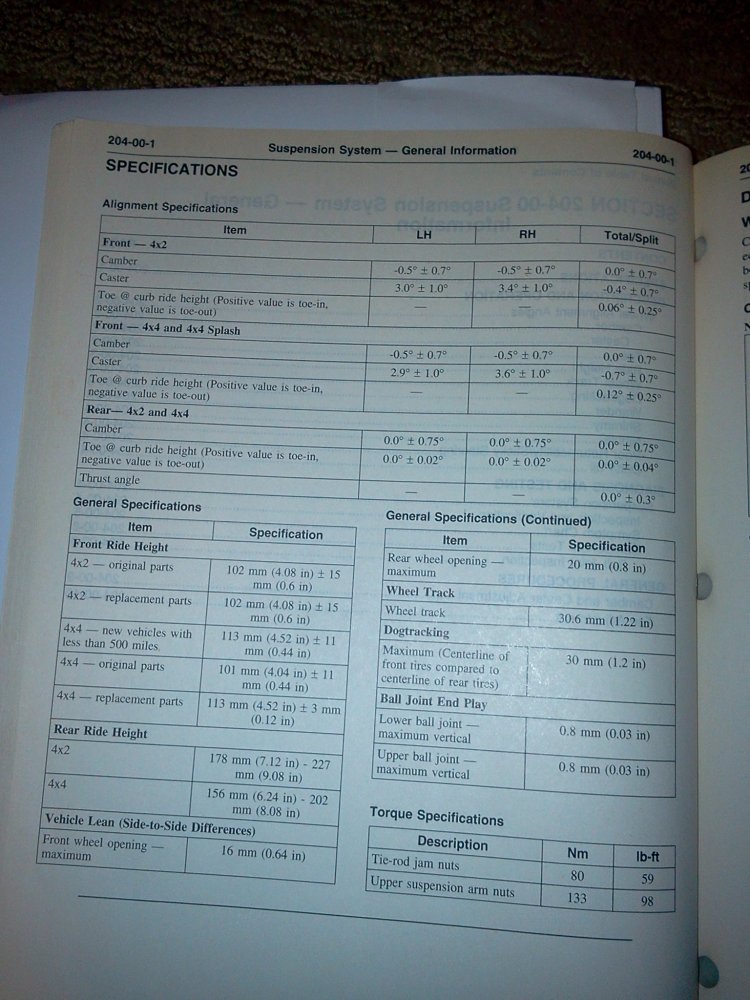 204-00-1 Suspension System — General Information 204-00-1
SPECIFICATIONS
Alignment Specifications
Item LH RH Total/Split
Front — 4x2
Camber -0.5° ± 0.7° -0.5° ± 0.7° 0.0° ± 0.7°
Caster 3.0° ± 1.0° 3.4° ± 1.0° -0.4° ± 0.7°
Toe @ curb ride height (Positive value is toe-in, — — 0.06° ± 0.25°
negative value is toe-out)
Front — 4x4 and 4x4 Splash
Camber -0.5° ± 0.7° -0.5° ± 0.7° 0.0° ± 0.7°
Caster 2.9° ± 1.0° 3.6° ± 1.0° -0.7° ± 0.7°
Toe @ curb ride height (Positive value is toe-in, — — 0.12° ± 0.25°
negative value is toe-out)
Rear— 4x2 and 4x4
Camber 0.0° ± 0.75° 0.0° ± 0.75° 0.0° ± 0.75°
Toe @ curb ride height (Positive value is toe-in, 0.0° ± 0.02° 0.0° ± 0.02° 0.0° ± 0.04°
negative value is toe-out)
Thrust angle — — 0.0° ± 0.3°
General Specifications
Item Specification
Front Ride Height
4x2 — original parts 102 mm (4.08 in) ± 15
mm (0.6 in)
4x2 — replacement parts 102 mm (4.08 in) ± 15
mm (0.6 in)
4x4 — new vehicles with 113 mm (4.52 in) ± 11
less than 500 miles mm (0.44 in)
4x4 — original parts 101 mm (4.04 in) ± 11
mm (0.44 in)
4x4 — replacement parts 113 mm (4.52 in) ± 3 mm
(0.12 in)
Rear Ride Height
4x2 178 mm (7.12 in) - 227
mm (9.08 in)
4x4 156 mm (6.24 in) - 202
mm (8.08 in)
Vehicle Lean (Side-to-Side Differences)
Front wheel opening — 16 mm (0.64 in)
maximum
General Specifications (Continued)
Item Specification
Rear wheel opening — 20 mm (0.8 in)
maximum
Wheel Track
Wheel track 30.6 mm (1.22 in)
Dogtracking
Maximum (Centerline of 30 mm (1.2 in)
front tires compared to
centerline of rear tires)
Ball Joint End Play
Lower ball joint — 0.8 mm (0.03 in)
maximum vertical
Upper ball joint — 0.8 mm (0.03 in)
maximum vertical
Torque Specifications
Description Nm lb-ft
Tie-rod jam nuts 80 59
Upper suspension arm nuts 133 98